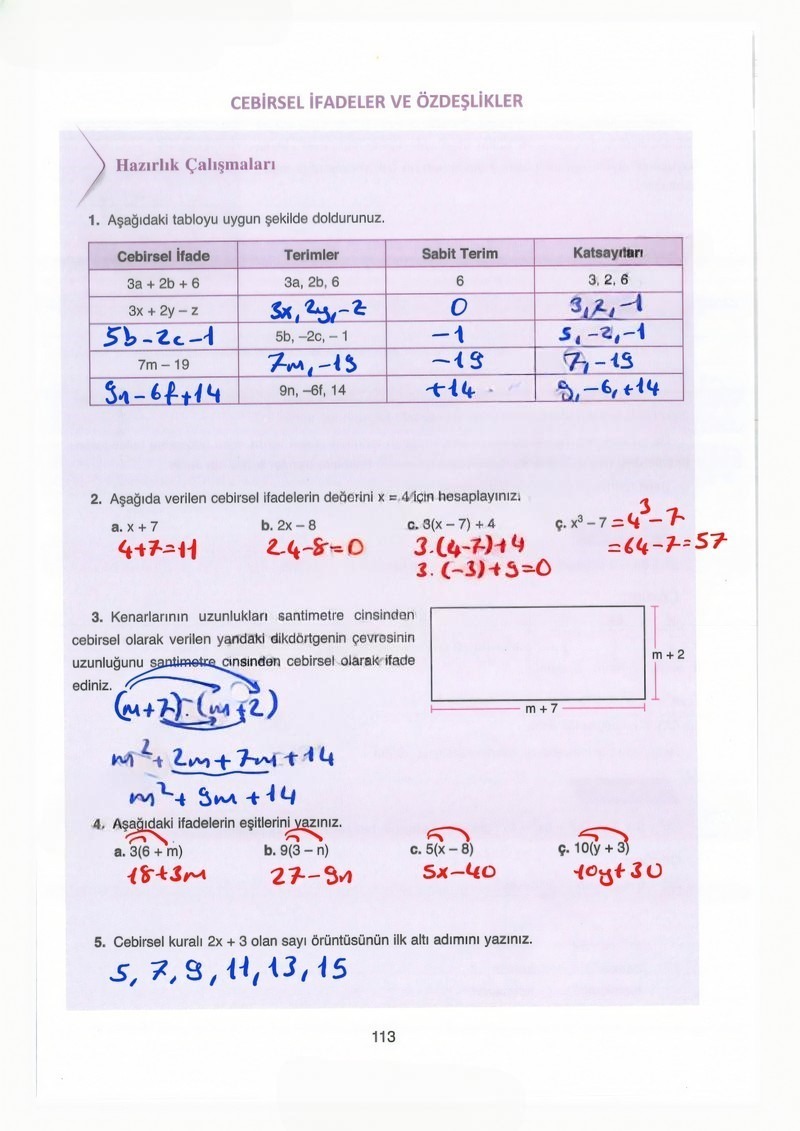 CEBİRSEL İFADELER VE ÖZDEŞLİKLER
Hazırlık Çalışmaları
1. Aşağıdaki tabloyu uygun şekilde doldurunuz.
Cebirsel İfade Terimler Sabit Terim Katsayıları
3a + 2b + 6 3a, 2b, 6 6 3, 2, 6
3x + 2y – z 3x, 2y, -z 0 3, 2, -1
5b - 2c - 1 5b, –2c, – 1 -1 5, -2, -1
7m – 19 7m, -19 -19 7, -19
9n - 6f + 14 9n, –6f, 14 +14 9, -6, +14
2. Aşağıda verilen cebirsel ifadelerin değerini x = 4 için hesaplayınız.
a. x + 7 b. 2x – 8 c. 3(x – 7) + 4 ç. x³ – 7 = 4³ - 7
4+7=11 24-8=0 3.(4-7)+4 =64-7=57
3.(-3)+9=0
3. Kenarlarının uzunlukları santimetre cinsinden
cebirsel olarak verilen yandaki dikdörtgenin çevresinin
uzunluğunu santimetre cinsinden cebirsel olarak ifade
ediniz.
m + 2
m + 7
(m+7).(m+2)
m² + 2m + 7m + 14
m² + 9m + 14
4. Aşağıdaki ifadelerin eşitlerini yazınız.
a. 3(6 + m) b. 9(3 – n) c. 5(x – 8) ç. 10(y + 3)
18+3m 27-9n 5x-40 10y+30
5. Cebirsel kuralı 2x + 3 olan sayı örüntüsünün ilk altı adımını yazınız.
5, 7, 9, 11, 13, 15
113